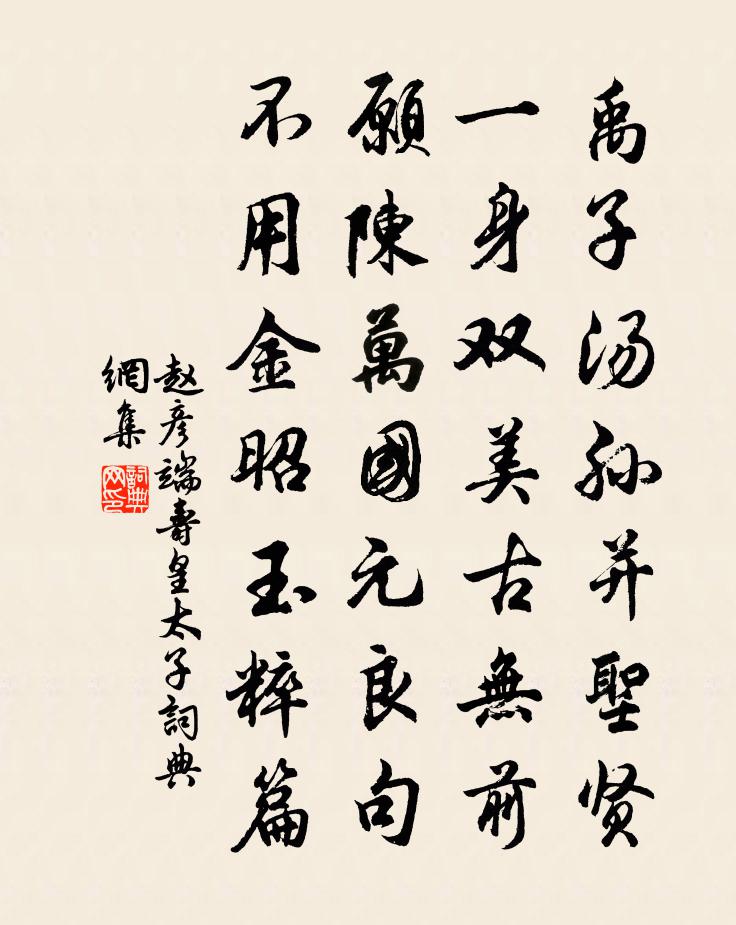 禹子汤孙并聖贤
一身双美古無前
願陳萬國元良句
不用金昭玉粹篇
赵彦端壽皇太子詞典
網集
詞典
网印